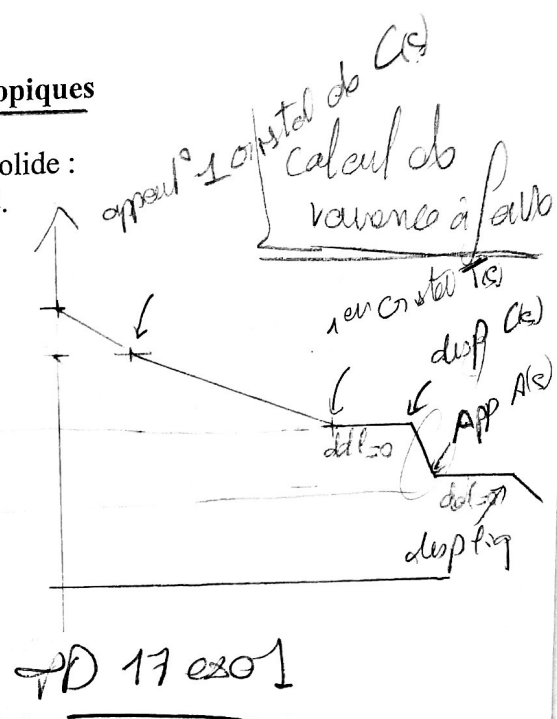 opiques
olide :
.
appart° 1 cristal de C(s)
calcul de
variance à faire
1er cristal I(s)
disp C(s)
App A(s)
ddl=0
ddl=0
disp liq
TD 17 exo 1